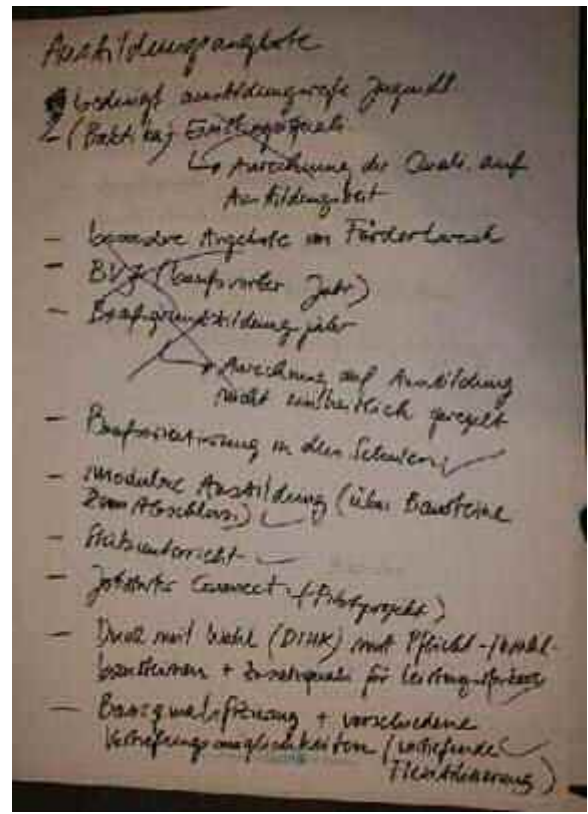 Ausbildungsangebote
bedingt ausbildungsreife Jugendl.
- (Praktika) Einstiegsquali.
↳ Anrechnung der Quali. auf
Ausbildungszeit
- besondere Angebote im Förderbereich
- BVJ (berufsvorber. Jahr)
- Berufsgrundbildungsjahr
↳ Anrechnung auf Ausbildung
nicht einheitlich geregelt
- Berufsorientierung in den Schulen ✓
- modulare Ausbildung (über Bausteine
zum Abschluss) ✓
- Stützunterricht ✓
- Jobstarter Connect (Pilotprojekt)
- Dual mit Wahl (DIHK) mit Pflicht-/Wahl-
+ Zusatzquali für
- Basisqualifizierung + verschiedene
Vertiefungsmöglichkeiten (vertiefende ✓
Flexibilisierung)